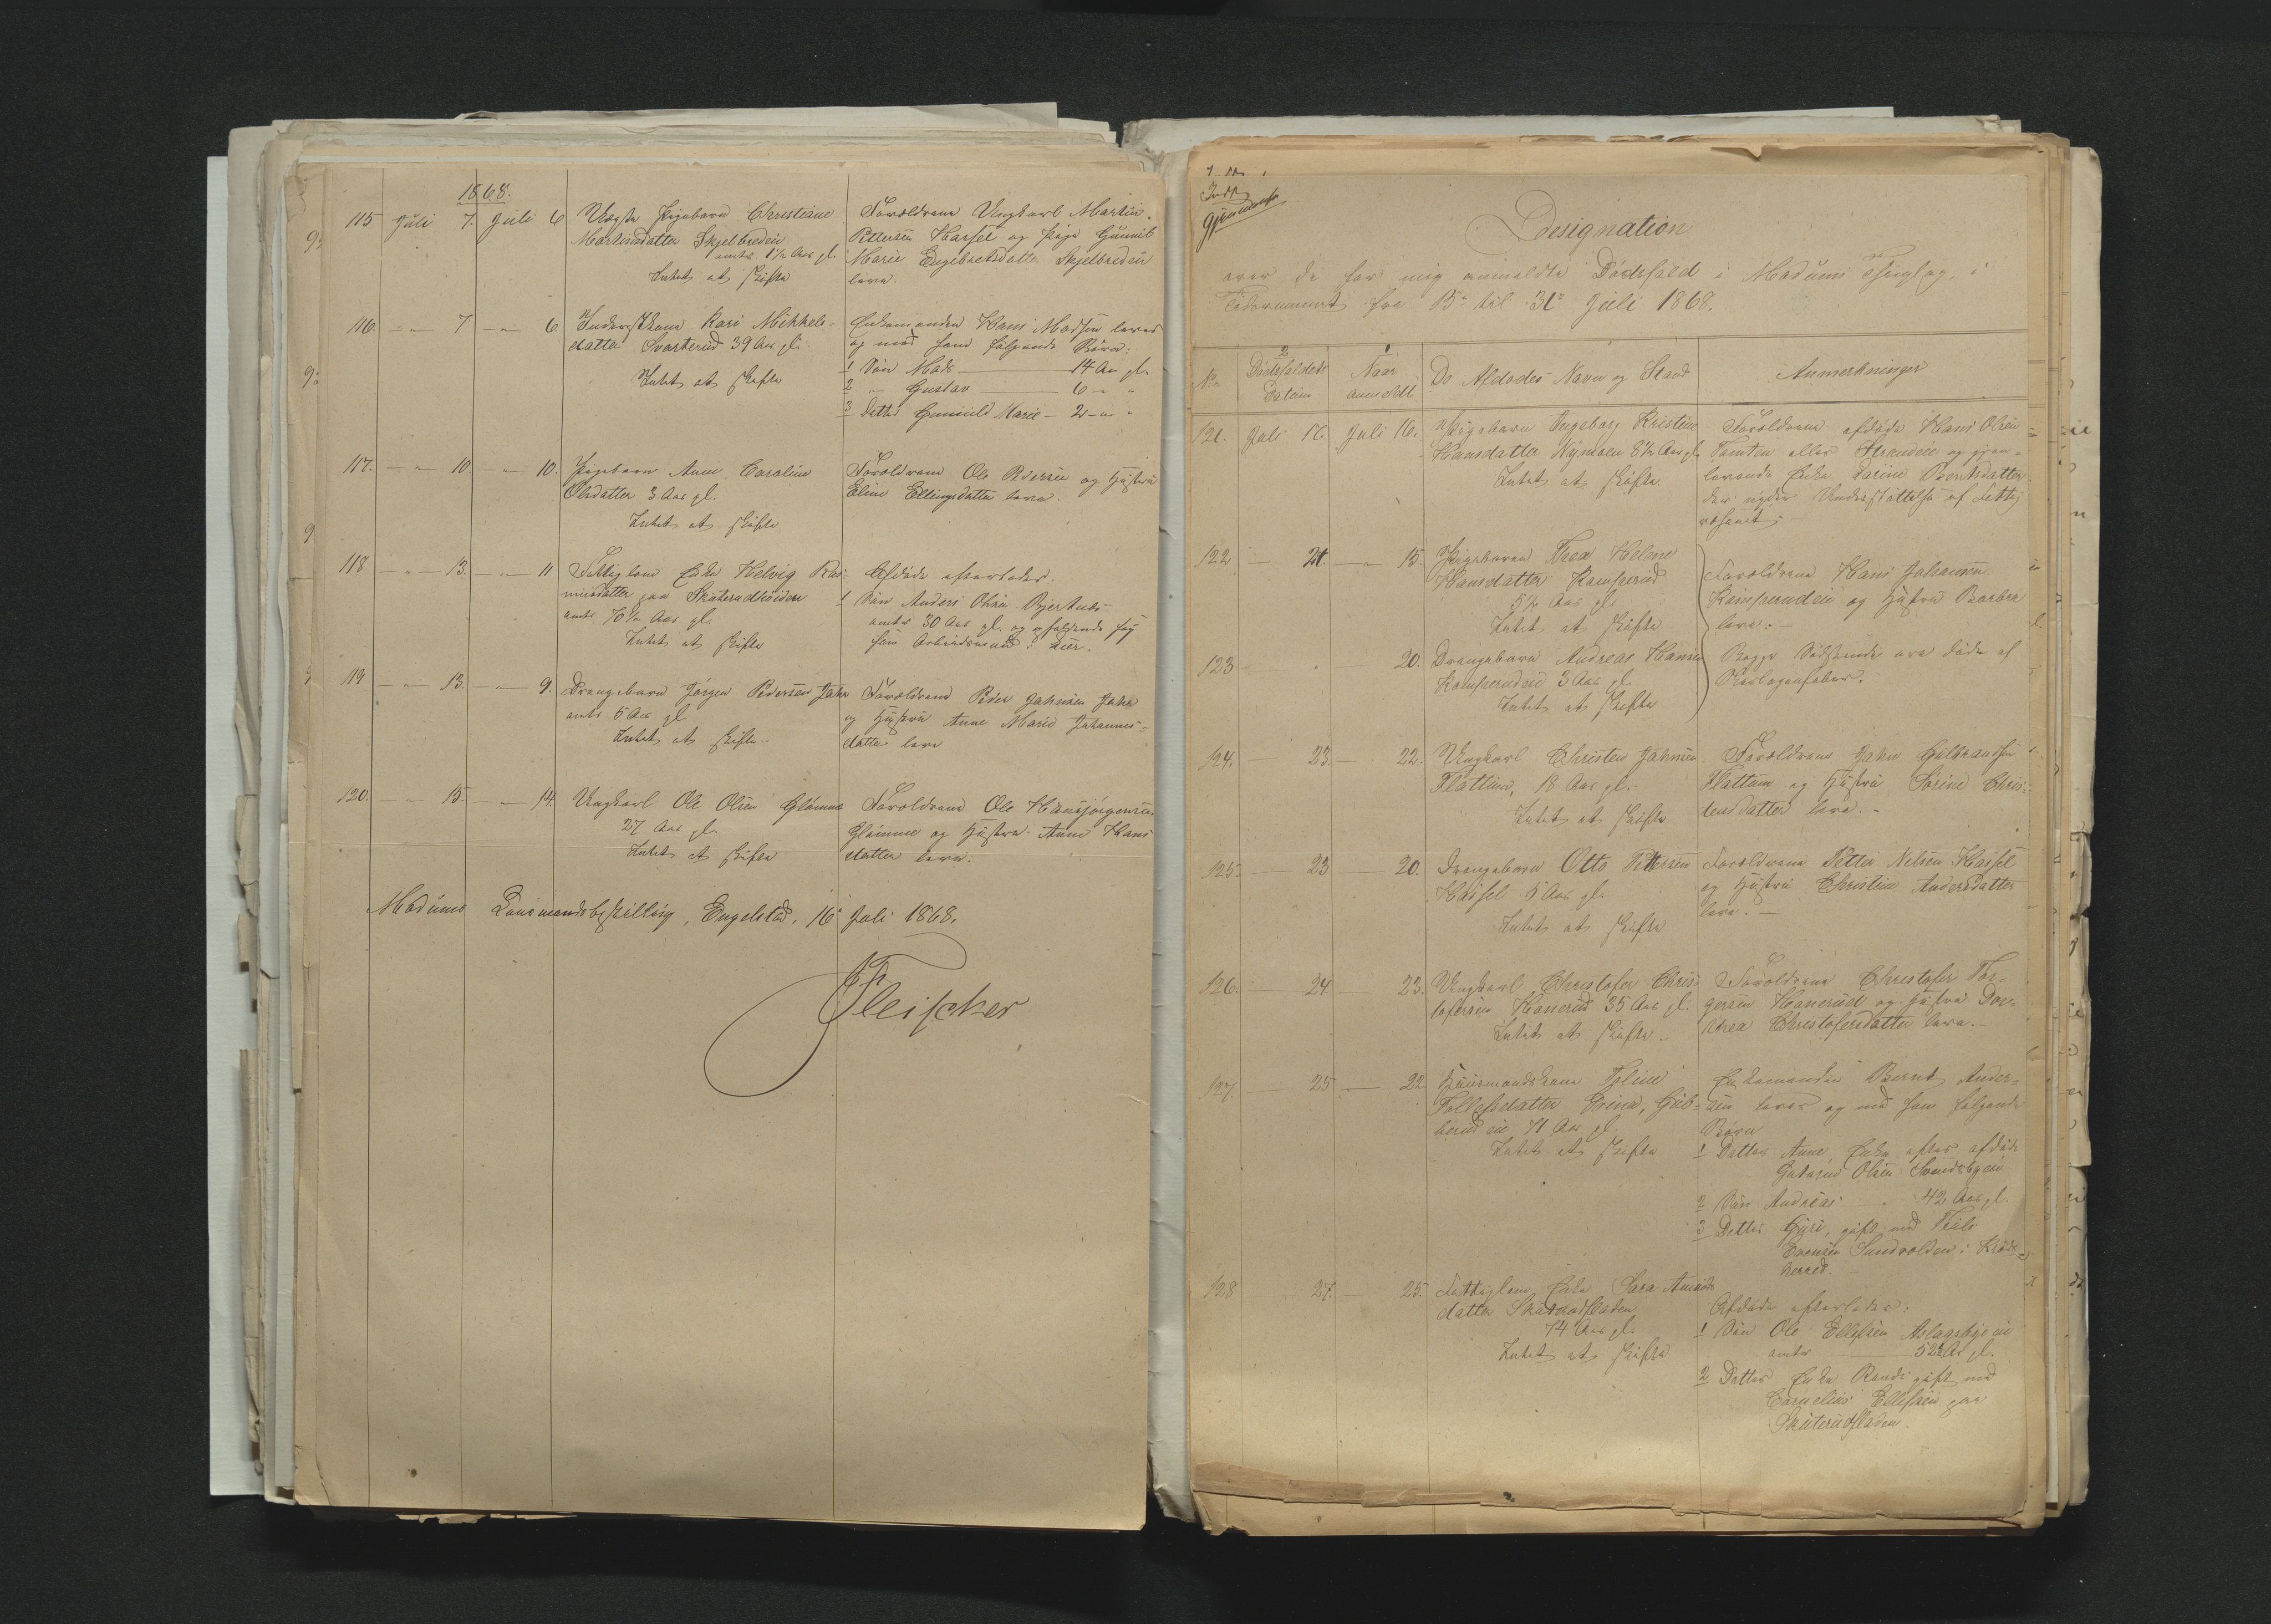 1868.
115 Juli 7. Juli 6 Uægte Pigebarn Christiane
Martinsdatter Skjelbredeie
omtr. 1½ Aar gl.
Intet at skifte
Forældrene Ungkarl Martin
Pettersen Hassel og Pige Gunnil
Marie Engebretsdatter Skjelbredeie
leve.
116. — " — 7 — " — 6 Inderstkone Kari Mikkels-
datter Svarterud 39 Aar gl.
Intet at skifte
Enkemanden Hans Madsen lever
og med ham følgende Børn:
1 Søn Mads — 14 Aar gl.
2 " Gustav — 6 — "
3 Datter Gunnild Marie — 2 — " — "
117. — " — 10. — " — 10. Pigebarn Anne Caroline
Olsdatter 3 Aar gl.
Intet at skifte
Forældrene Ole Pedersen og Hustru
Eline Ellingsdatter leve.
118 — " — 13. — " — 11 Fattiglem Enke Helvig Ras-
musdatter paa Skuterudhøiden
omtr 70½ Aar gl.
Intet at skifte
Afdøde efterlader.
1 Søn Anders Olsen Bjertnæs
omtr 30 Aar gl. og opholdende sig
som Arbeidsmand i Lier.
119 — " — 13. — " — 9. Drengebarn Jørgen Pedersen
omtr 5 Aar gl.
Intet at skifte.
Forældrene Peder Jahnsen
og Hustru Anne Marie Johannes-
datter leve
120. — " — 15. — " — 14. Ungkarl Ole Olsen Glomme
27 Aar gl.
Intet at skifte
Forældrene Ole Hansjørgensen
Glomme og Hustru Anne Hans
datter leve.
Modums Lensmandsbestilling, Engelstad, 16 Juli 1868.
Fleischer
Designation
over de for mig anmeldte Dødsfald i Modums Thinglag i
Tidsrummet fra 15de til 31te Juli 1868.
No. 2 Dødsfaldets Datum 1 Naar anmeldt De Afdødes Navn og Stand Anmerkninger
121. Juli 16. Juli 16. Pigebarn Ingeborg Kristine
Hansdatter Nymoen 8½ Aar gl.
Intet at skifte
Forældrene afdøde Hans Olsen
Tomten eller Stranden og gjen-
levende Enke Karine Berntsdatter
der nyder Understøttelse af Fattig
væsenet
122. — 21 — " — 15. Pigebarn Thea Helene
Hansdatter Komperud
5½ Aar gl.
Intet at skifte
Forældrene Hans Johansen
Komperudeie og Hustru Barbra
leve. —
123 — " — 20. Drengebarn Andreas Hansen
Komperudeie 3 Aar gl.
Intet at skifte
Begge Sødskende ere døde af
Skarlagensfeber.
124. — 23. — 22. Ungkarl Christen Jahnsen
Flattum, 18 Aar gl.
Intet at skifte
Forældrene Jahn Gulbrandsen
Flattum og Hustru Sørine Chris-
tensdatter leve. —
125. — 23 — 20. Drengebarn Otto Pettersen
Hassel 5 Aar gl.
Intet at skifte
Forældrene Petter Nilsen Hassel
og Hustru Christine Andersdatter
leve. —
126. — 24 — 23. Ungkarl Christofer Chris-
tofersen Hanerud 35 Aar gl.
Intet at skifte.
Forældrene Christofer Tor-
gersen Hanerud og Hustru Dor-
thea Christofersdatter leve. —
127. — 25 — 22 Huusmandskone Toline
Tollefsdatter Grina, Gub-
berudeie 71 Aar gl.
Intet at skifte
Enkemanden Bernt Ander-
sen lever og med ham følgende
Børn
1 Datter Anne, Enke efter afdøde
Olsen
2 Søn Andreas — 42 Aar gl.
3 Datter Guri, gift med Truls
Evensen Sundvolden i Kröds-
herred.
128 — 27. — 25. Fattiglem Enke Sara Amunds
datter Skuterudfladen
74 Aar gl.
Intet at skifte
Afdøde efterlader:
1 Søn Ole Ellefsen Aslagsbyeie
omtr — 52 Aar gl.
2 Datter Enke Randi gift med
Cornelius Ellefsen paa
Skuterudfladen.